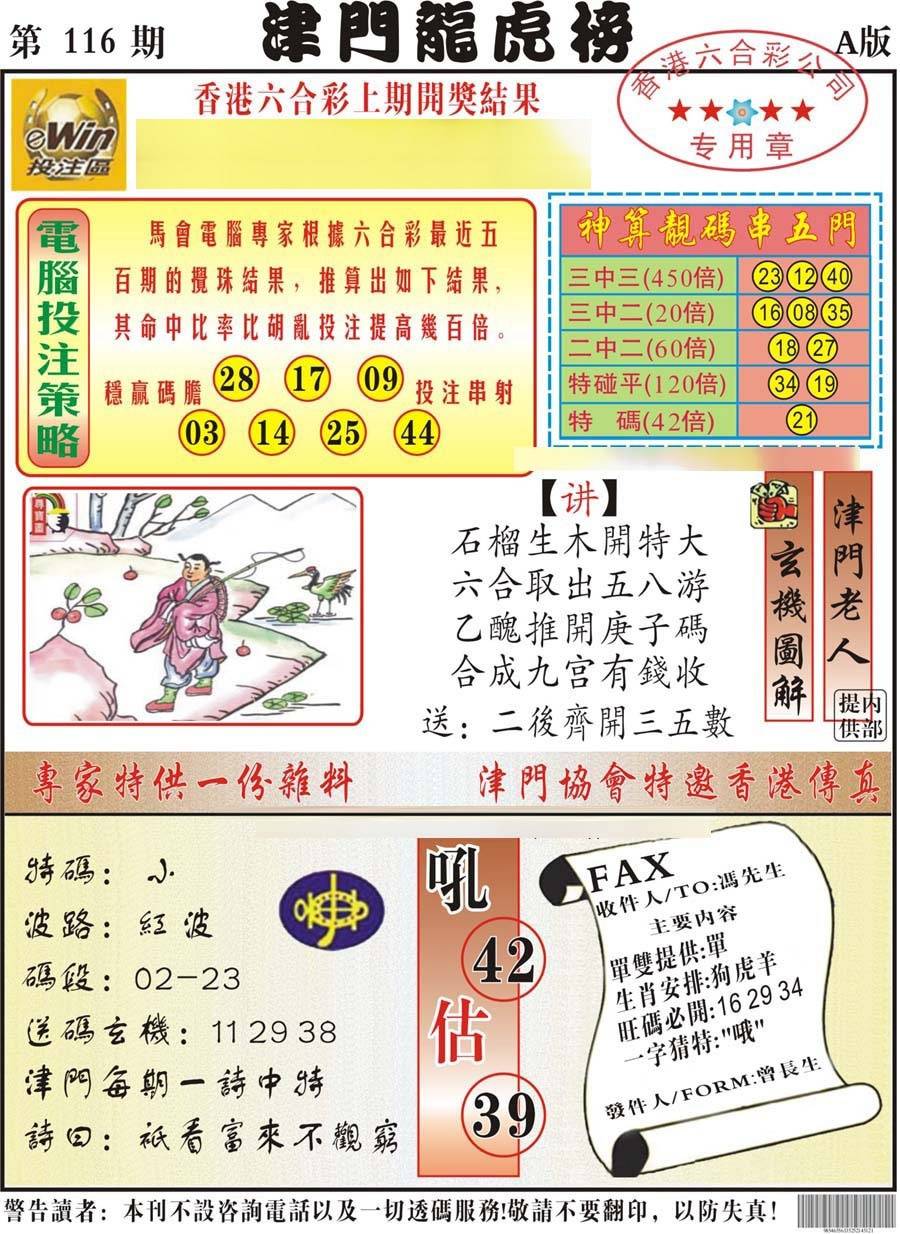 第 116 期
津門龍虎榜
A版
香港六合彩上期開獎結果
香港六合彩公司
专用章
eWin
投注區
電腦投注策略
馬會電腦專家根據六合彩最近五
百期的攪珠結果，推算出如下結果，
其命中比率比胡亂投注提高幾百倍。
穩贏碼膽 28 17 09 投注串射
03 14 25 44
神算靚碼串五門
三中三(450倍) 23 12 40
三中二(20倍) 16 08 35
二中二(60倍) 18 27
特碰平(120倍) 34 19
特 碼(42倍) 21
尋寶圖
【讲】
石榴生木開特大
六合取出五八游
乙醜推開庚子碼
合成九宫有錢收
送：二後齊開三五數
玄機圖解
津門老人
内部提供
專家特供一份雜料
津門協會特邀香港傳真
特碼：小
波路：紅波
碼段：02-23
送碼玄機：11 29 38
津門每期一詩中特
詩曰：衹看富來不觀窮
吼
42
估
39
FAX
收件人/TO:馮先生
主要内容
單雙提供:單
生肖安排:狗虎羊
旺碼必開:16 29 34
一字猜特:"哦"
發件人/FORM:曾長生
警告讀者：本刊不設咨詢電話以及一切透碼服務!敬請不要翻印，以防失真！